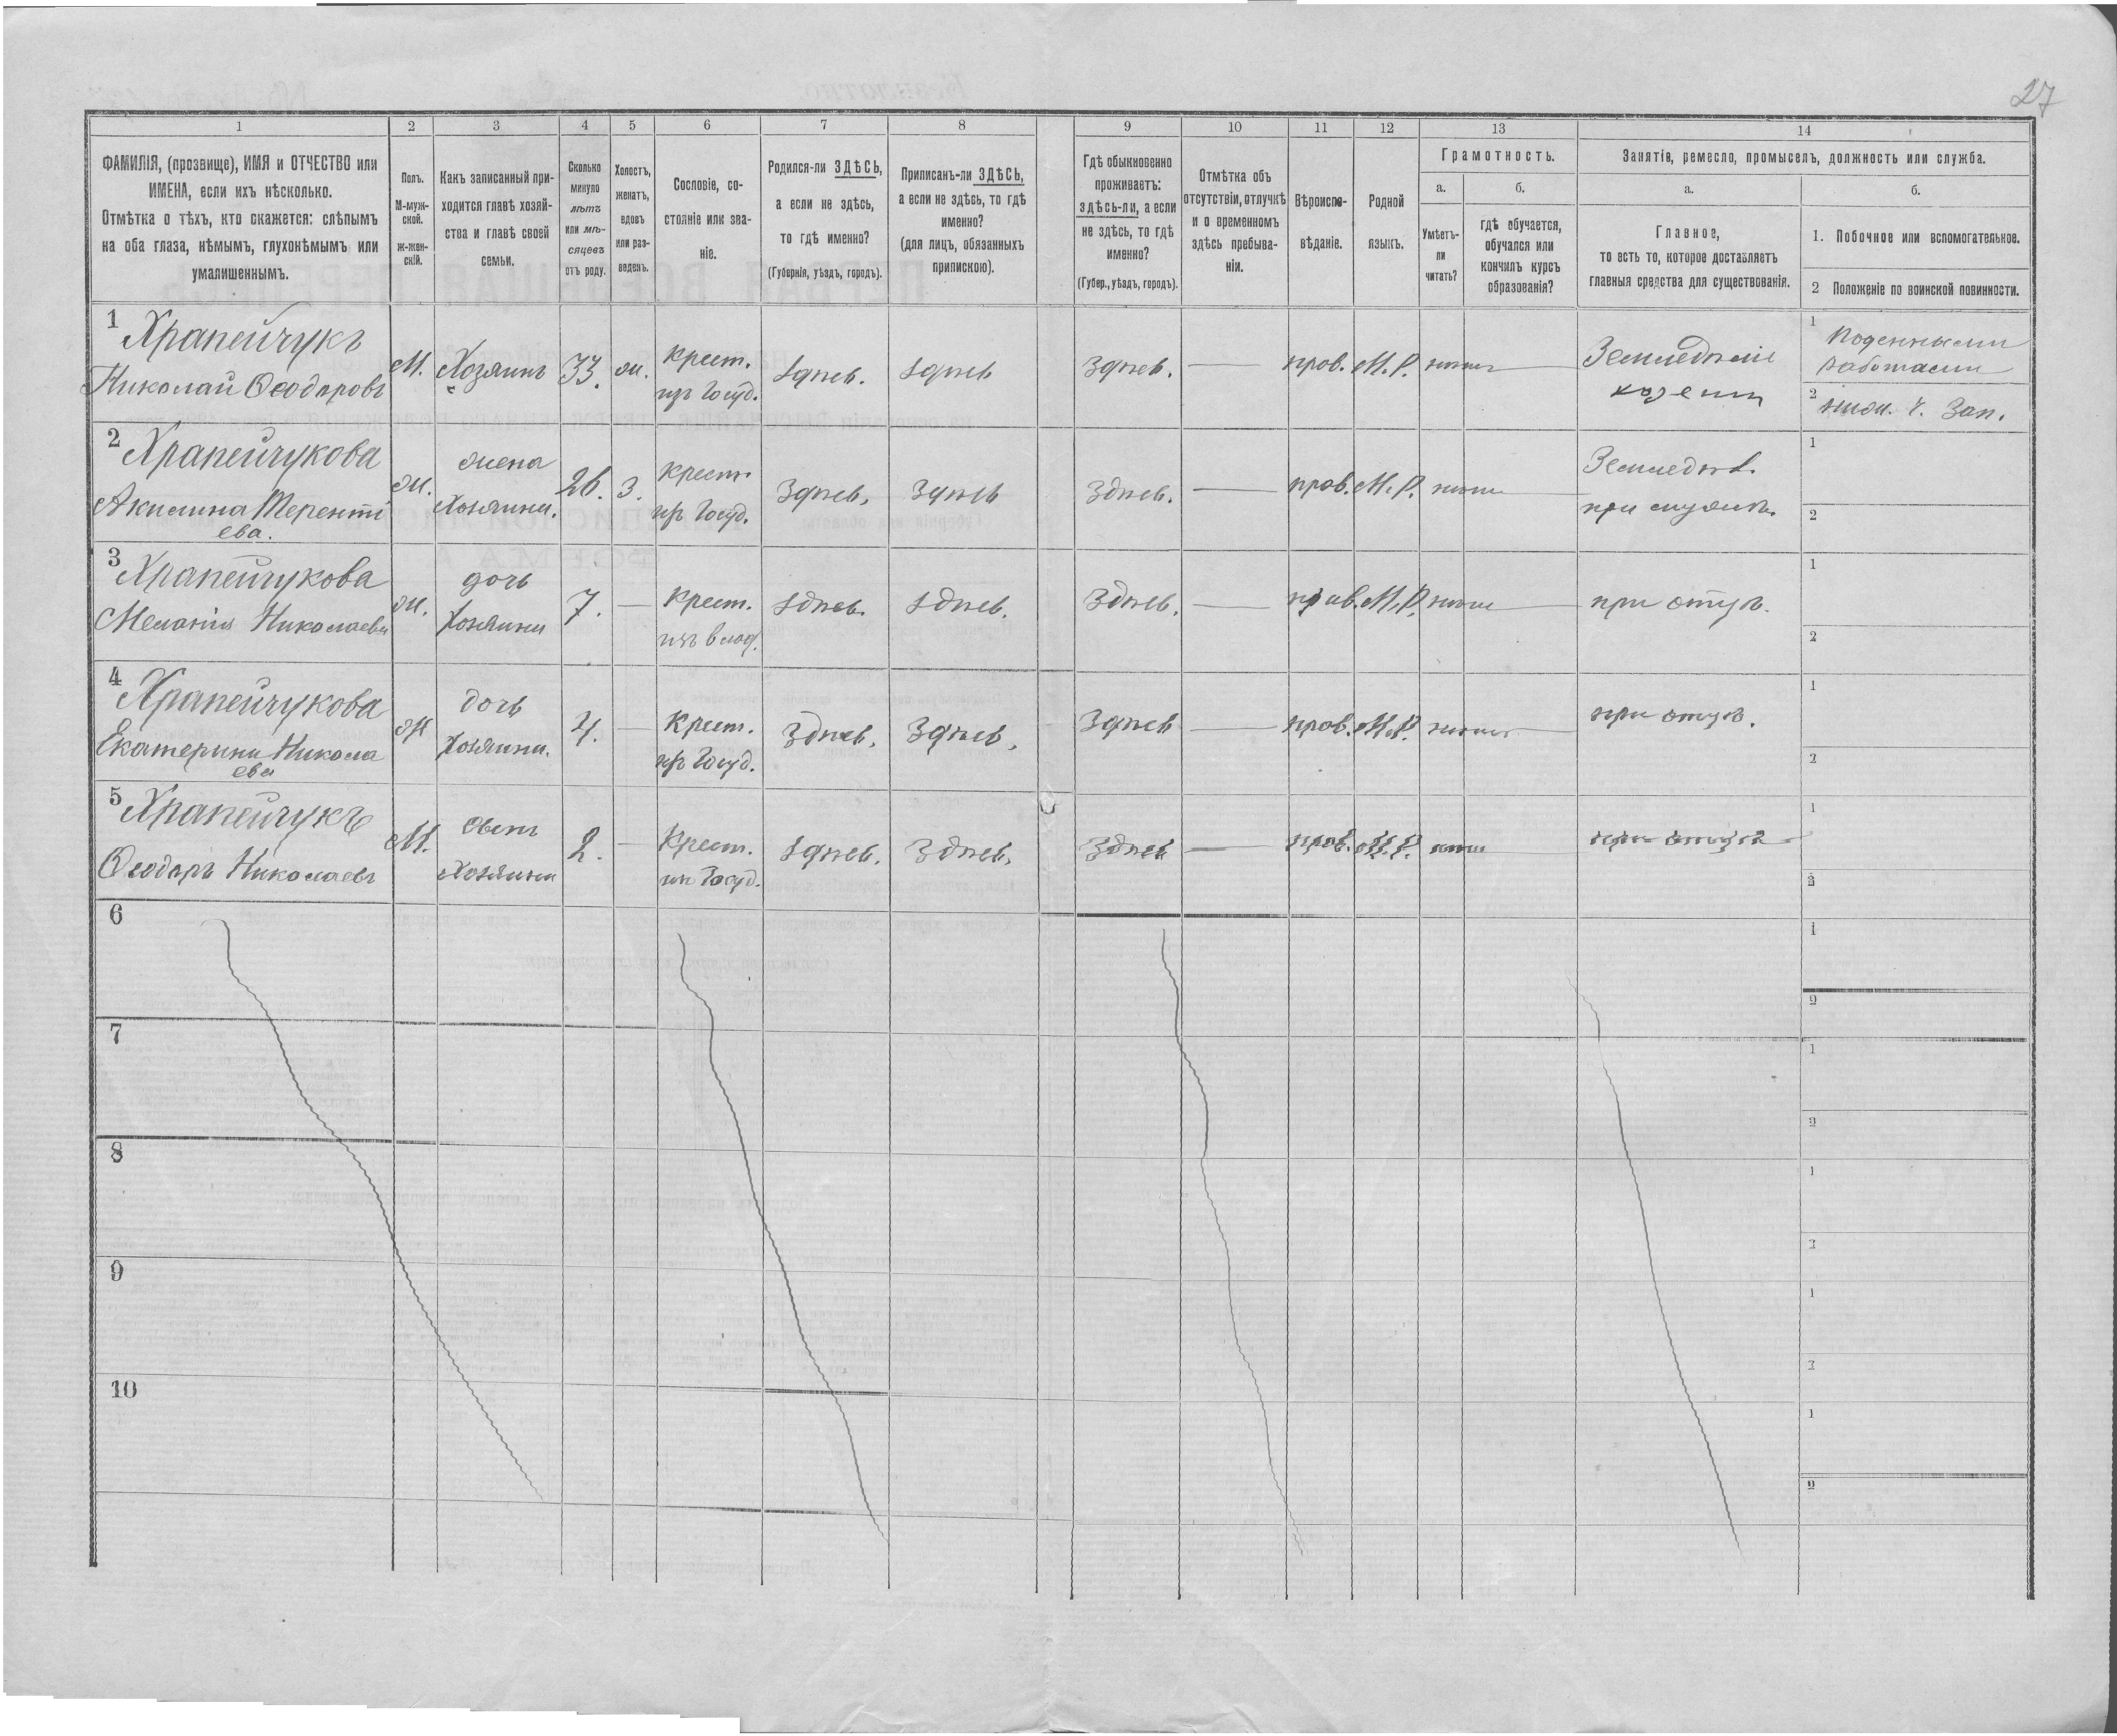 27
1 2 3 4 5 6 7 8 9 10 11 12 13 14
ФАМИЛІЯ, (прозвище), ИМЯ и ОТЧЕСТВО или
ИМЕНА, если ихъ нѣсколько.
Отмѣтка о тѣхъ, кто окажется: слѣпымъ
на оба глаза, нѣмымъ, глухонѣмымъ или
умалишеннымъ.
Полъ.
М-муж-
ской.
ж-жен-
скій.
Какъ записанный при-
ходится главѣ хозяй-
ства и главѣ своей
семьи.
Сколько
минуло
лѣтъ
или мѣ-
сяцевъ
отъ роду.
Холостъ,
женатъ,
вдовъ
или раз-
веденъ.
Сословіе, со-
стояніе или зва-
ніе.
Родился-ли ЗДѢСЬ,
а если не здѣсь,
то гдѣ именно?
(Губернія, уѣздъ, городъ).
Приписанъ-ли ЗДѢСЬ,
а если не здѣсь, то гдѣ
именно?
(для лицъ, обязанныхъ
припискою).
Гдѣ обыкновенно
проживаетъ:
здѣсь-ли, а если
не здѣсь, то гдѣ
именно?
(Губер., уѣздъ, городъ).
Отмѣтка объ
отсутствіи, отлучкѣ
и о временномъ
здѣсь пребыва-
ніи.
Вѣроиспо-
вѣданіе.
Родной
языкъ.
Грамотность.
а.
Умѣетъ-
ли
читать?
б.
гдѣ обучается,
обучался или
кончилъ курсъ
образованія?
Занятіе, ремесло, промыселъ, должность или служба.
а.
Главное,
то есть то, которое доставляетъ
главныя средства для существованія.
б.
1. Побочное или вспомогательное.
2 Положеніе по воинской повинности.
1 Храпейчукъ
Николай Ѳеодоровъ
М. Хозяинъ 33. ж. Крест.
изъ Госуд.
Здѣсь. Здѣсь Здѣсь. — прав. М. Р. нѣтъ
Земледѣліе
хозяинъ
1 Поденными
работами
2 ниж. ч. Зап.
2 Храпейчукова
Акилина Терентi
ева.
ж. жена
Хозяина.
26. З. Крест.
изъ Госуд.
Здѣсь. Здѣсь Здѣсь. — прав. М. Р. нѣтъ
Земледѣл.
при мужѣ.
1
2
3 Храпейчукова
Меланія Николаева
ж. дочь
Хозяина
7. — Крест.
изъ влад.
Здѣсь. Здѣсь. Здѣсь. — прав. М. Р. нѣтъ
при отцѣ.
1
2
4 Храпейчукова
Екатерина Никола
ева
ж дочь
Хозяина.
4. — Крест.
изъ Госуд.
Здѣсь. Здѣсь. Здѣсь — прав. М. Р. нѣтъ
при отцѣ.
1
2
5 Храпейчукъ
Ѳеодоръ Николаевъ
М. сынъ
Хозяина
2. — Крест.
изъ Госуд.
Здѣсь. Здѣсь. Здѣсь — прав. М. Р. нѣтъ
при отцѣ
1
2
6
1
2
7
1
2
8
1
2
9
1
2
10
1
2